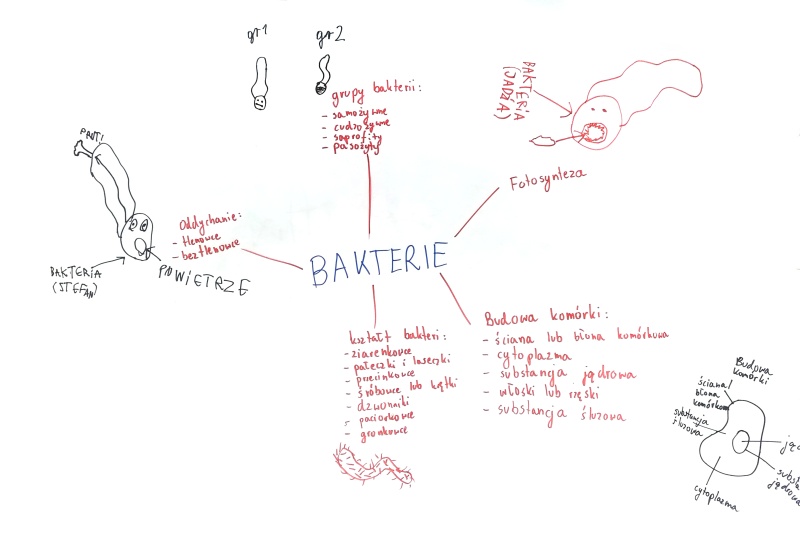 gr 1
gr 2
grupy bakterii:
- samożywne
- cudzożywne
- saprofity
- pasożyty
BAKTERIA
(JADZIA)
Fotosynteza
PRUTI
Oddychanie:
- tlenowce
- beztlenowce
BAKTERIA
(STEFAN)
POWIETRZE
BAKTERIE
kształt bakterii:
- ziarenkowce
- pałeczki i laseczki
- przecinkowce
- śrubowce lub krętki
- dzwonniki
- paciorkowce
- gronkowce
Budowa komórki:
- ściana lub błona komórkowa
- cytoplazma
- substancja jądrowa
- włoski lub rzęski
- substancja śluzowa
Budowa
komórki
ściana/
błona
komórkowa
substancja
śluzowa
cytoplazma